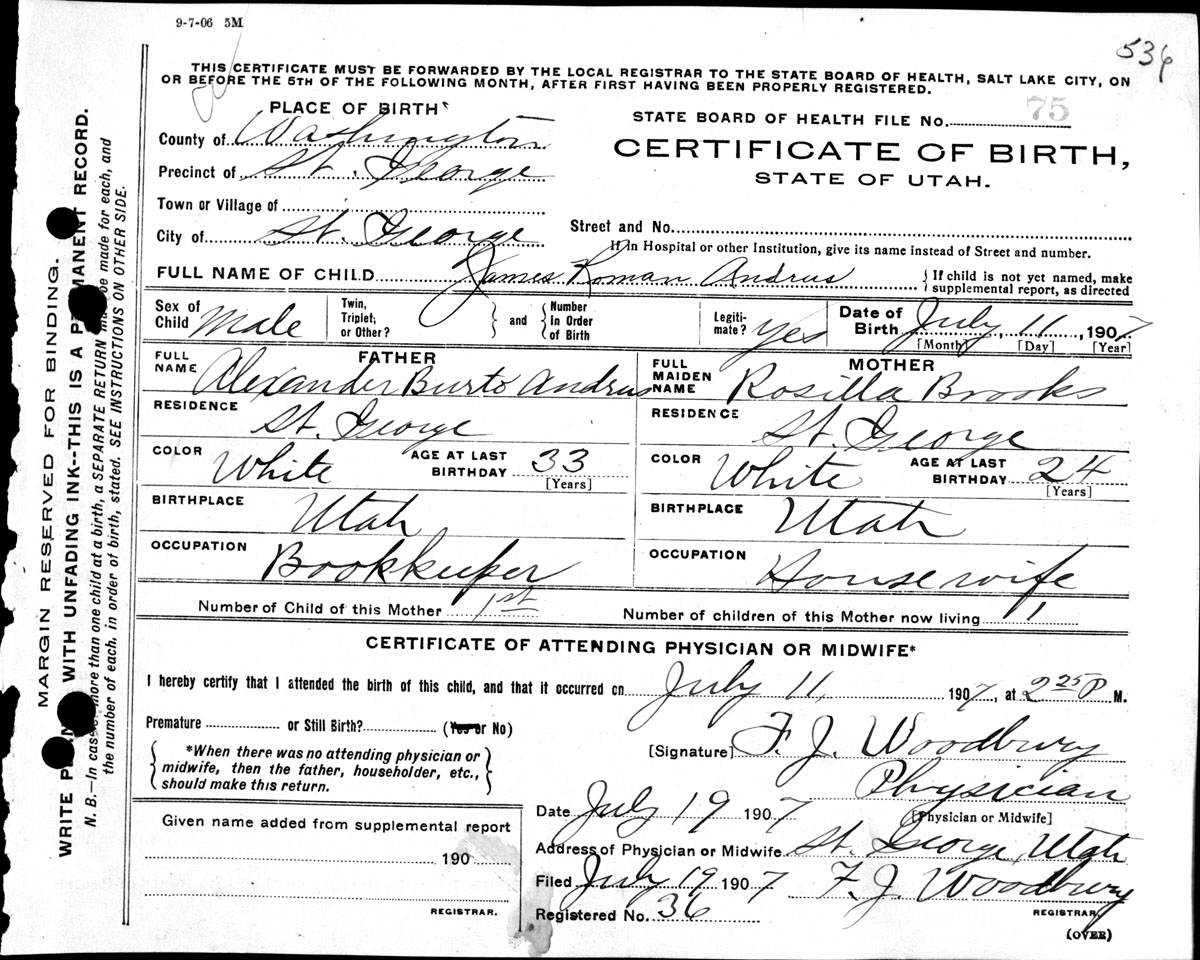 9-7-06 5M
536
THIS CERTIFICATE MUST BE FORWARDED BY THE LOCAL REGISTRAR TO THE STATE BOARD OF HEALTH, SALT LAKE CITY, ON
OR BEFORE THE 5TH OF THE FOLLOWING MONTH, AFTER FIRST HAVING BEEN PROPERLY REGISTERED.
PLACE OF BIRTH
County of Washington
Precinct of St. George
Town or Village of
City of St. George
STATE BOARD OF HEALTH FILE No. 75
CERTIFICATE OF BIRTH,
STATE OF UTAH.
Street and No.
If in Hospital or other Institution, give its name instead of Street and number.
FULL NAME OF CHILD James Roman Andrus { If child is not yet named, make
supplemental report, as directed
Sex of Child Male
Twin, Triplet, or Other? } and { Number In Order of Birth
Legiti-mate? yes
Date of Birth July 11, 1907
[Month] [Day] [Year]
FATHER
FULL NAME Alexander Burt Andrus
RESIDENCE St. George
COLOR White AGE AT LAST BIRTHDAY 33
[Years]
BIRTHPLACE Utah
OCCUPATION Bookkeeper
MOTHER
FULL MAIDEN NAME Rosilla Brooks
RESIDENCE St. George
COLOR White AGE AT LAST BIRTHDAY 24
[Years]
BIRTHPLACE Utah
OCCUPATION Housewife
Number of Child of this Mother 1st Number of children of this Mother now living 1
CERTIFICATE OF ATTENDING PHYSICIAN OR MIDWIFE*
I hereby certify that I attended the birth of this child, and that it occurred on July 11, 1907, at 2 25 P M.
Premature or Still Birth? (Yes or No)
*When there was no attending physician or
midwife, then the father, householder, etc.,
should make this return.
[Signature] F. J. Woodbury
Physician
[Physician or Midwife]
Date July 19 1907
Address of Physician or Midwife St. George, Utah
Filed July 19 1907 F. J. Woodbury
REGISTRAR.
Registered No. 36
(OVER)
Given name added from supplemental report
190
REGISTRAR.
MARGIN RESERVED FOR BINDING.
WRITE WITH UNFADING INK--THIS IS A PERMANENT RECORD.
N. B.—In case more than one child at a birth, a SEPARATE RETURN must be made for each, and
the number of each, in order of birth, stated. SEE INSTRUCTIONS ON OTHER SIDE.